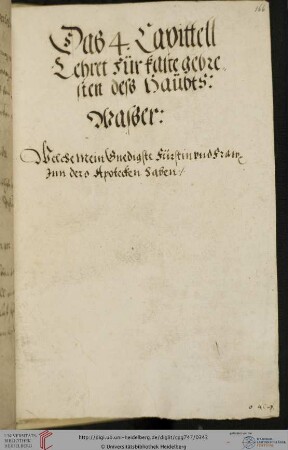 166
Das 4. Capittell
Lehret Für kalte gebre
sten deß Haubts:
Waßer:
Welche mein Gnedigste Fürstin vnd Fraw
Inn dero Apotecken haben /
UNIVERSITÄTS-
BIBLIOTHEK
HEIDELBERG
http://digi.ub.uni-heidelberg.de/diglit/cpg747/0343
© Universitätsbibliothek Heidelberg